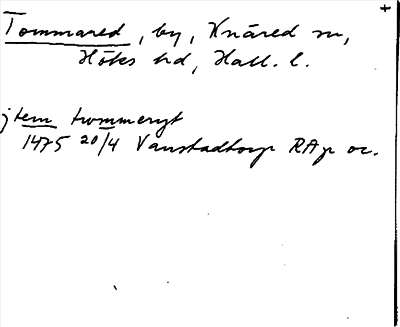 +
Tommared, by, Knäred sn,
Höks hd, Hall. l.
jtem twmmeryt
1475 20/4 Vanstadtorp RAp or.